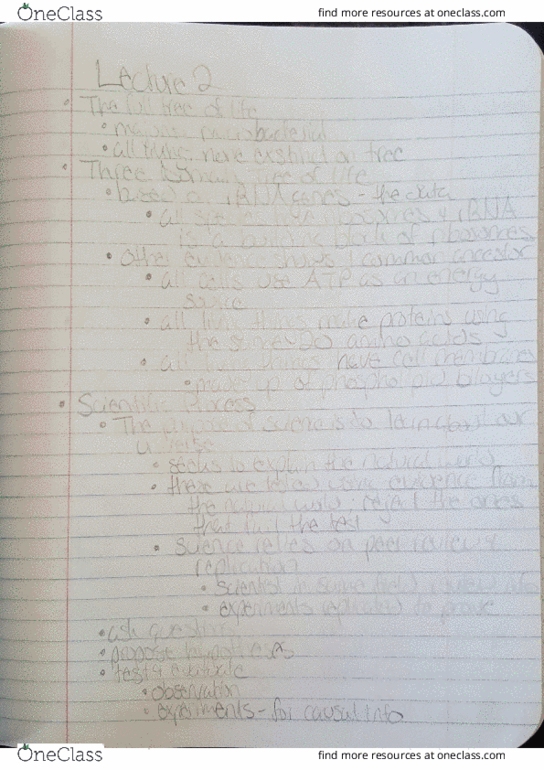 OneClass
find more resources at oneclass.com
Lecture 2
• The full tree of life
• all things here extinct on tree
• Three Domain Tree of life
• based on rRNA genes - the data
• all species have ribosomes & rRNA
is a building block of ribosomes
• other evidence shows 1 common ancestor
• all cells use ATP as an energy
• all living things make proteins using
the same 20 amino acids
• all living things have cell membranes
• made up of phospholipid bilayers
• Scientific Process
• The purpose of science is to learn about our
• seeks to explain the natural world
• these are tested using evidence from
the natural world, reject the ones
that fail the test
• science relies on peer review &
replication
• scientist in same field
• experiments replicated to prove
• ask questions
• propose hypotheses
• test & evaluate
• observation
• experiments - for causal info
OneClass
find more resources at oneclass.com